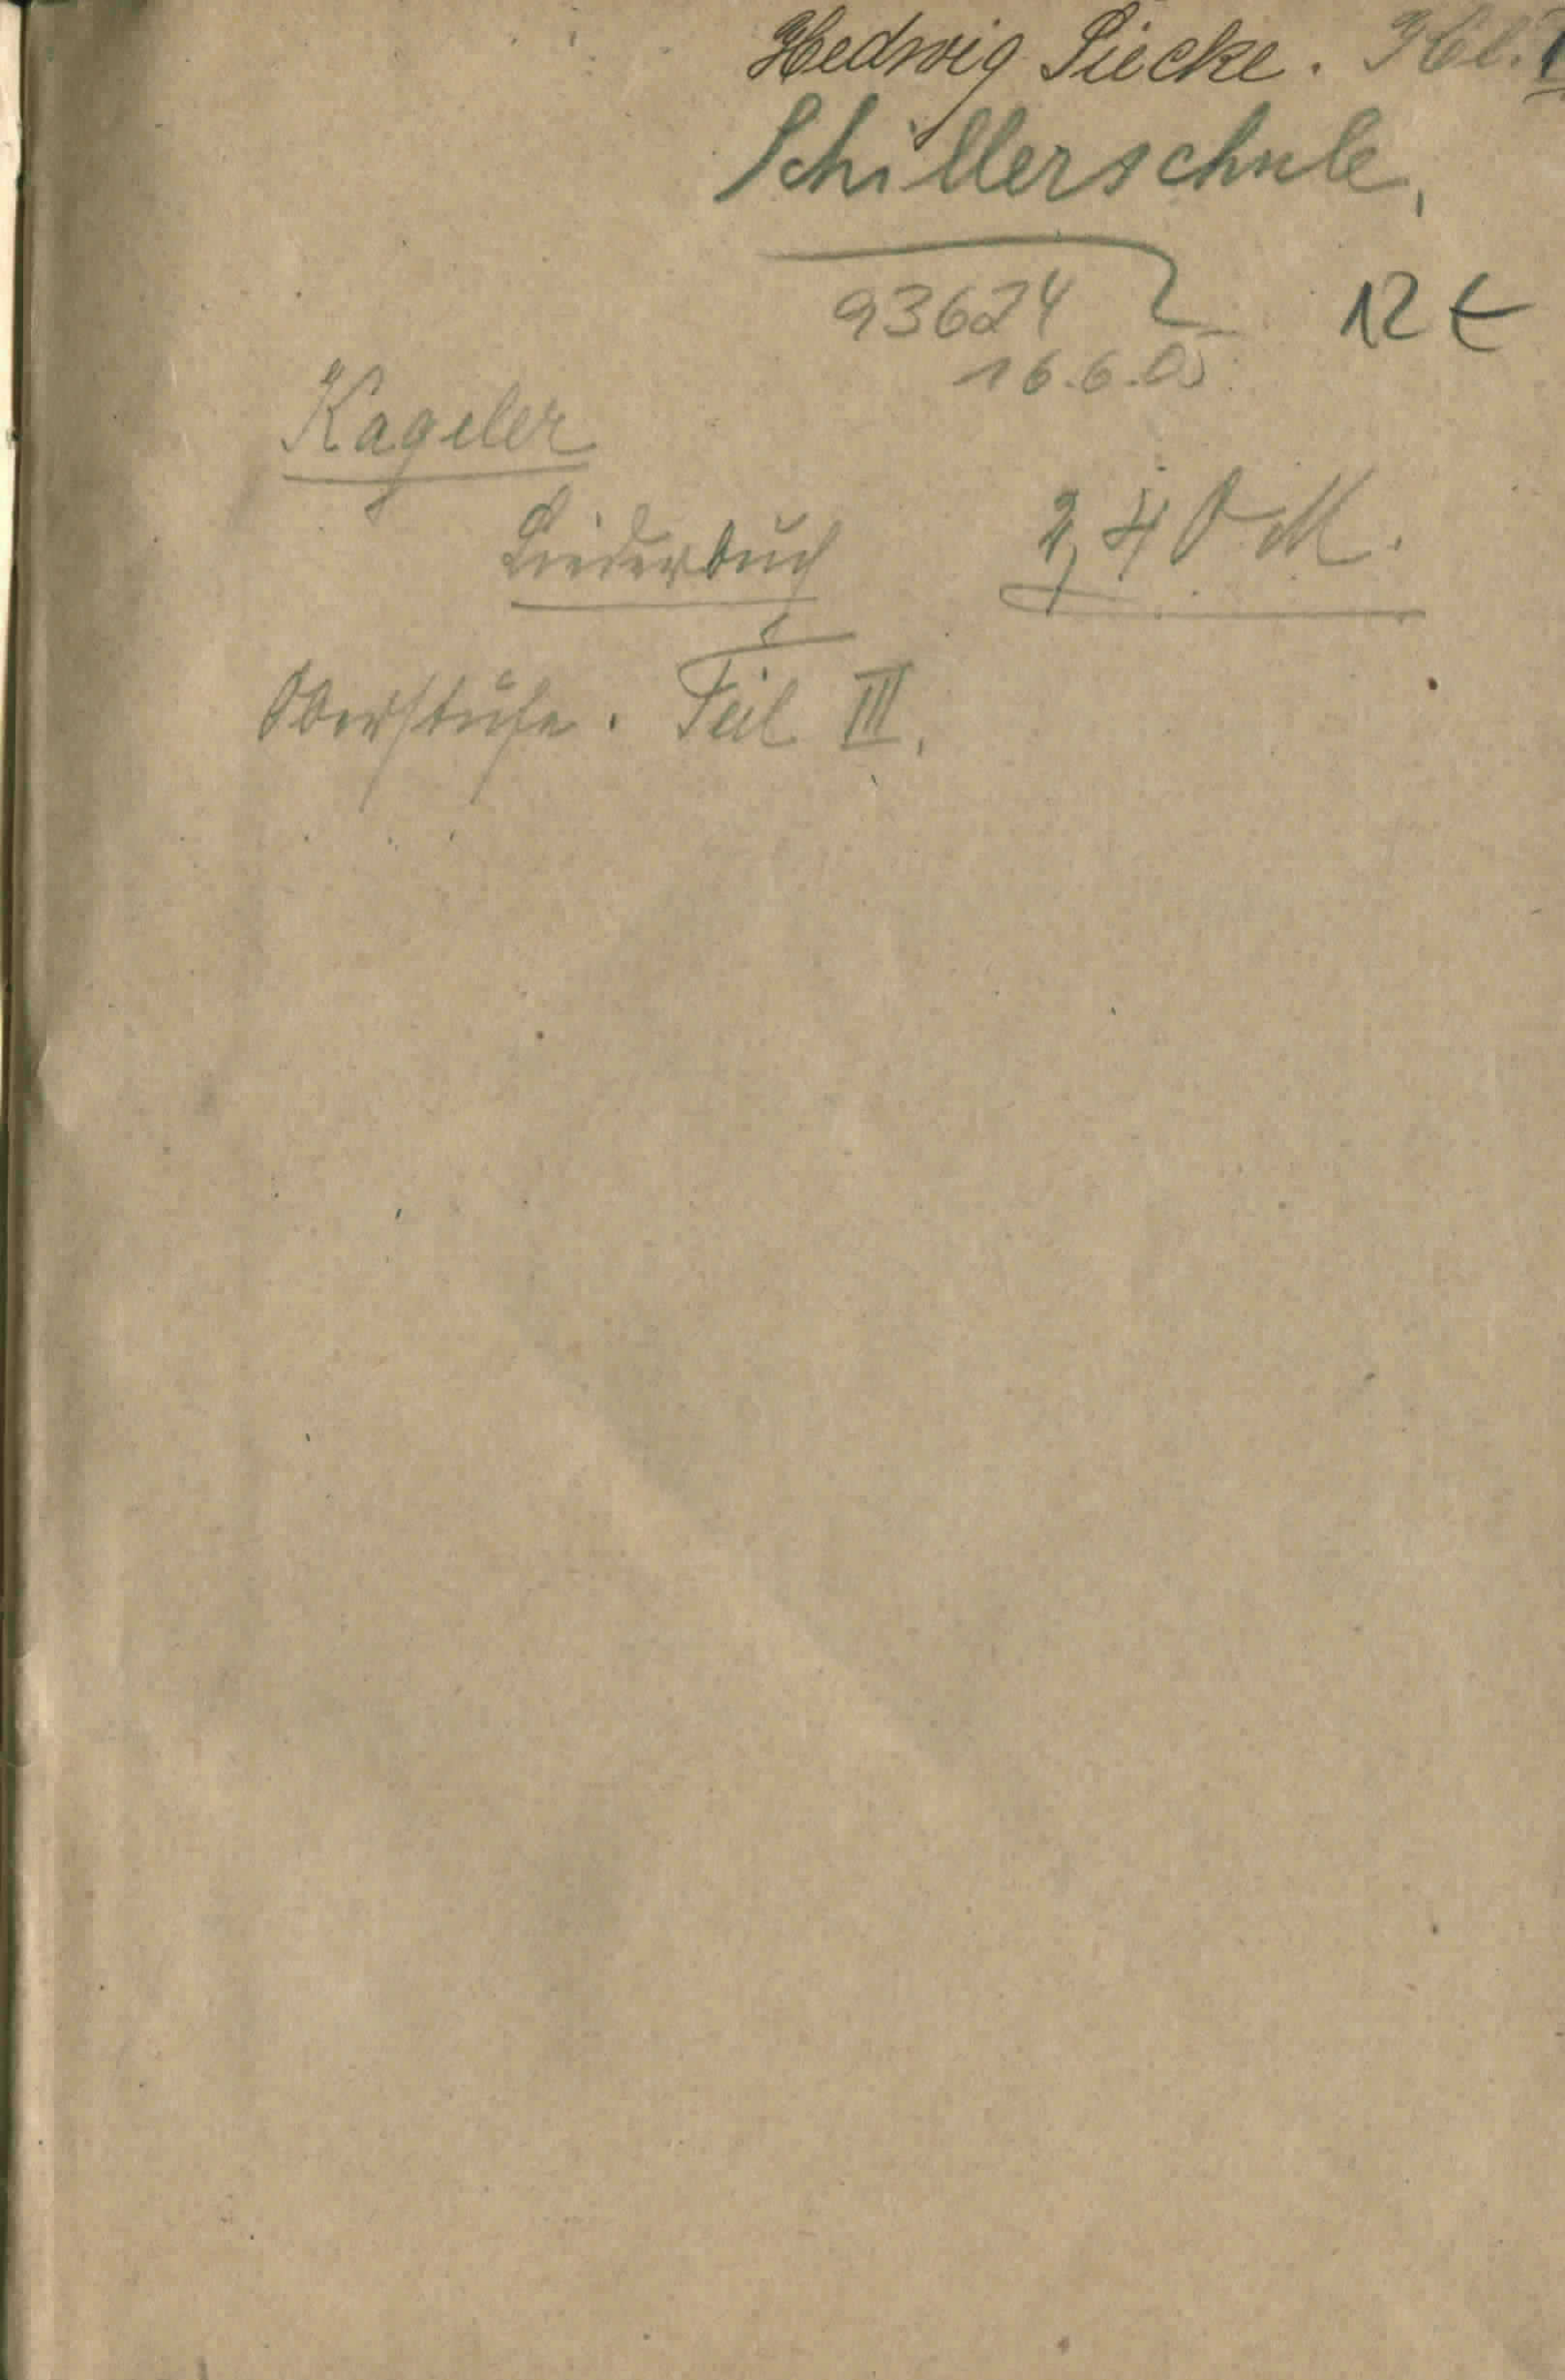 Hedwig Siecke. Kl.
Schillerschule,
93624 12 €
16.6.05
Kageler
Liederbuch 2,40 M.
Oberstufe. Teil III.